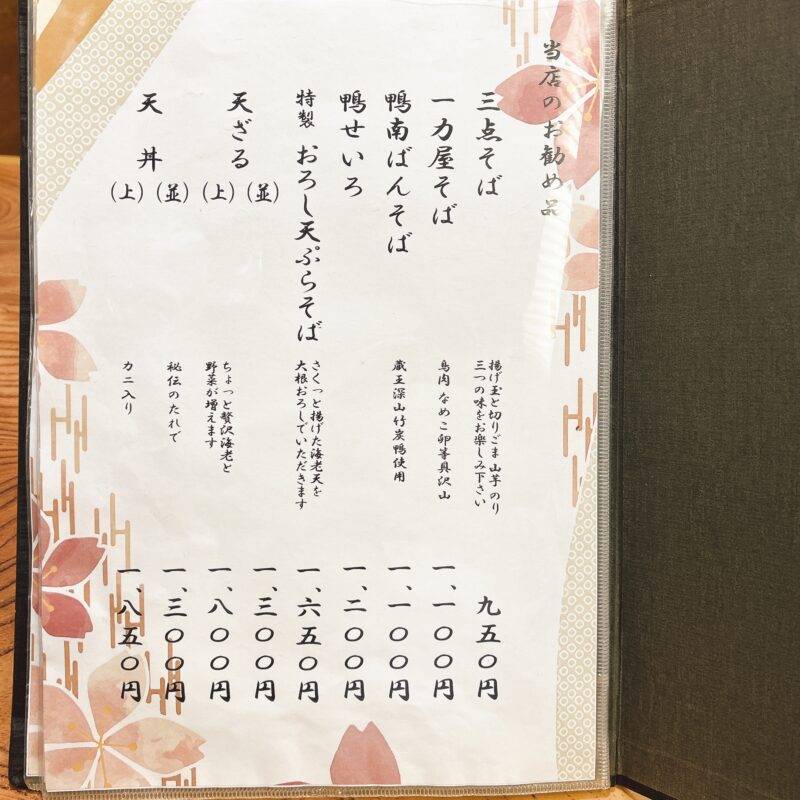 当店のお勧め品
三点そば
揚げ玉と切りごま 山芋 のり
三つの味をお楽しみ下さい
九五〇円
一力屋そば
鳥肉 なめこ 卵等具沢山
一、一〇〇円
鴨南ばんそば
蔵王深山竹炭鴨使用
一、一〇〇円
鴨せいろ
一、二〇〇円
特製 おろし天ぷらそば
さくっと揚げた海老天を
大根おろしでいただきます
一、六五〇円
天ざる
(並)
一、三〇〇円
(上)
ちょっと贅沢海老と
野菜が増えます
一、八〇〇円
天丼
(並)
秘伝のたれで
一、三〇〇円
(上)
カニ入り
一、八五〇円